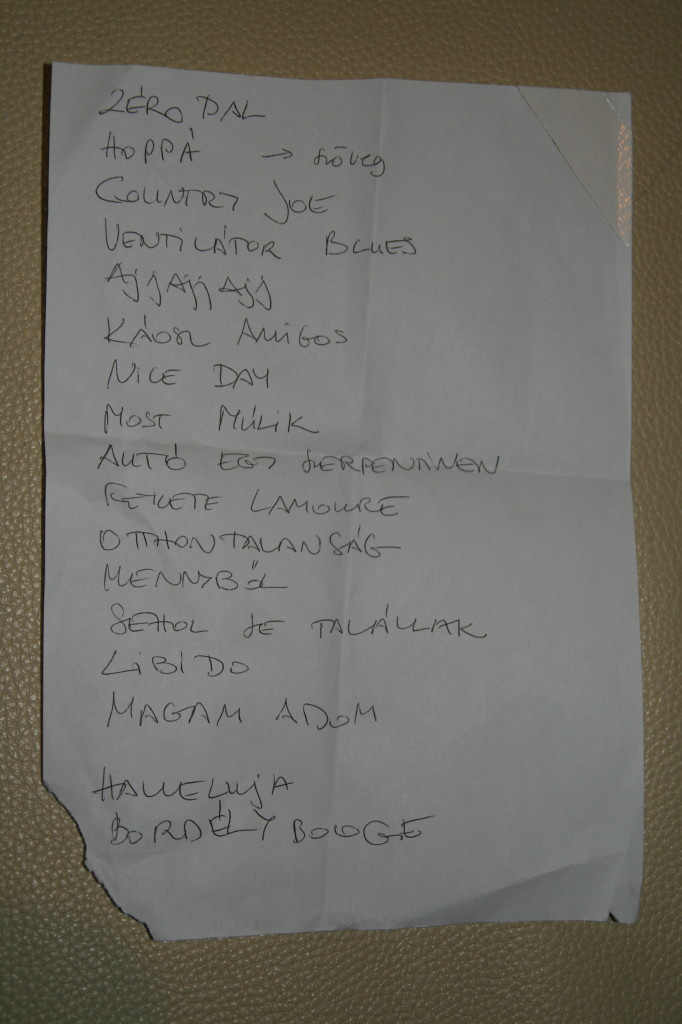 ZÉRO DAL
HOPPÁ → szöveg
COUNTRY JOE
VENTILÁTOR BLUES
AJJAJJAJJ
KÁOSZ AMIGOS
NICE DAY
MOST MÚLIK
AUTÓ EGY SZERPENTINEN
FEKETE LAMOURE
OTTHONTALANSÁG
MENNYBŐL
SEHOL SE TALÁLLAK
LIBIDO
MAGAM ADOM
HALLELUJA
BORDÉLY BOOGE